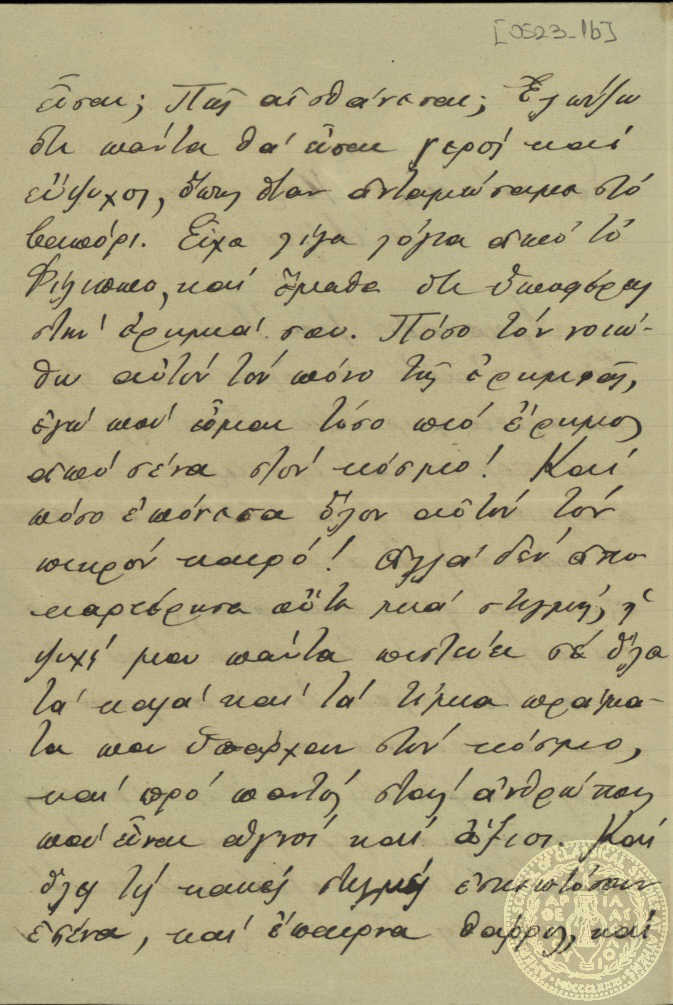 [0523_1b]
εἶσαι; Πῶς αἰσθάνεσαι; Ἐλπίζω
ὅτι πάντα θά εἶσαι γερός καί
εὔψυχος, ὅπως ὅταν ἀνταμώσαμε στό
βαπόρι. Εἶχα λίγα λόγια ἀπό τό
Φίλιππο, καί ἔμαθα ὅτι ὑποφέρεις
στήν ἐρημιά σου. Πόσο τόν νοιώ-
θω αὐτόν τόν πόνο τῆς ἐρημιᾶς,
ἐγώ πού εἶμαι τόσο πιό ἔρημος
ἀπό σένα στόν κόσμο! Καί
πόσο ἐπόνεσα ὅλον αὐτόν τόν
πικρόν καιρό! Ἀλλά δέν ἀπο-
καρτέρησα οὔτε μιά στιγμή, ἡ
ψυχή μου πάντα πιστεύει σέ ὅλα
τά καλά καί τά τίμια πράγμα-
τα που ὑπάρχουν στόν κόσμο,
καί πρό παντός στούς ἀνθρώπους
πού εἶναι ἁγνοί καί ἄξιοι. Καί
ὅλες τίς κακές στιγμές ἐσκεπτόμουν
ἐσένα, καί ἔπαιρνα θάρρος, καί